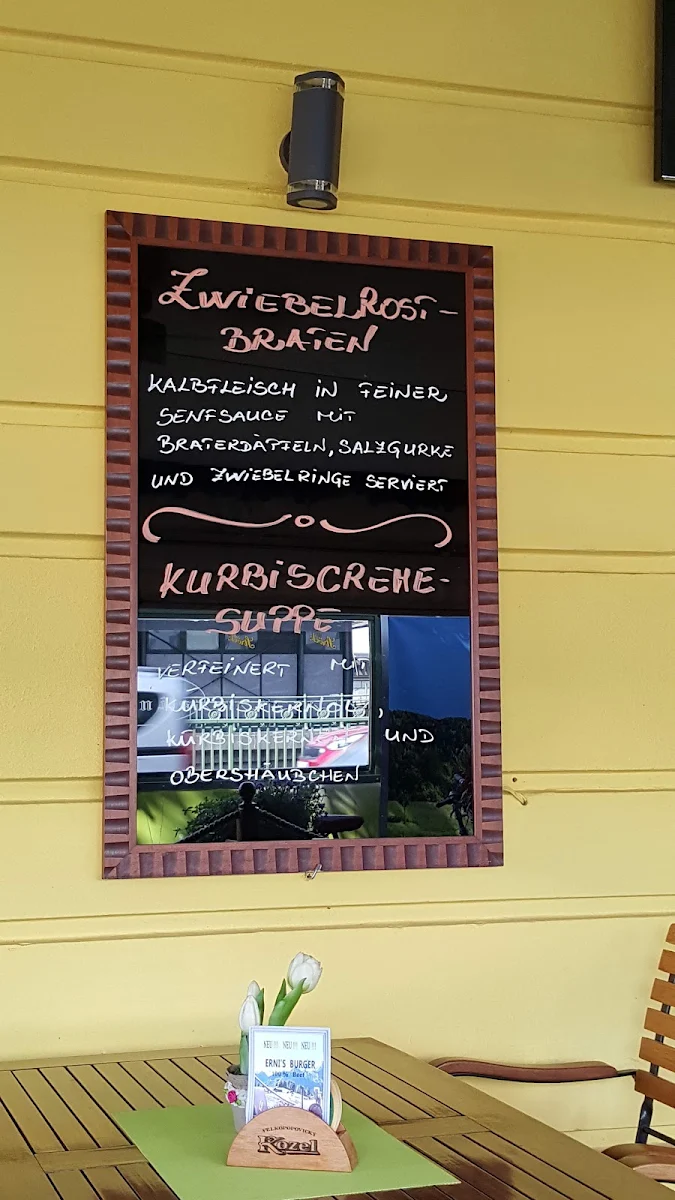 ZWIEBELROST-
BRATEN
KALBFLEISCH IN FEINER
SENFSAUCE MIT
BRATERDÄPFELN, SALZGURKE
UND ZWIEBELRINGE SERVIERT
KÜRBISCREME-
SUPPE
VERFEINERT MIT
KÜRBISKERNÖL,
KÜRBISKERNEN UND
OBERSHÄUBCHEN
NEU!!! NEU!!! NEU!!!
ERNI'S BURGER
100% Beef
VELKOPOPOVICKÝ
Kozel